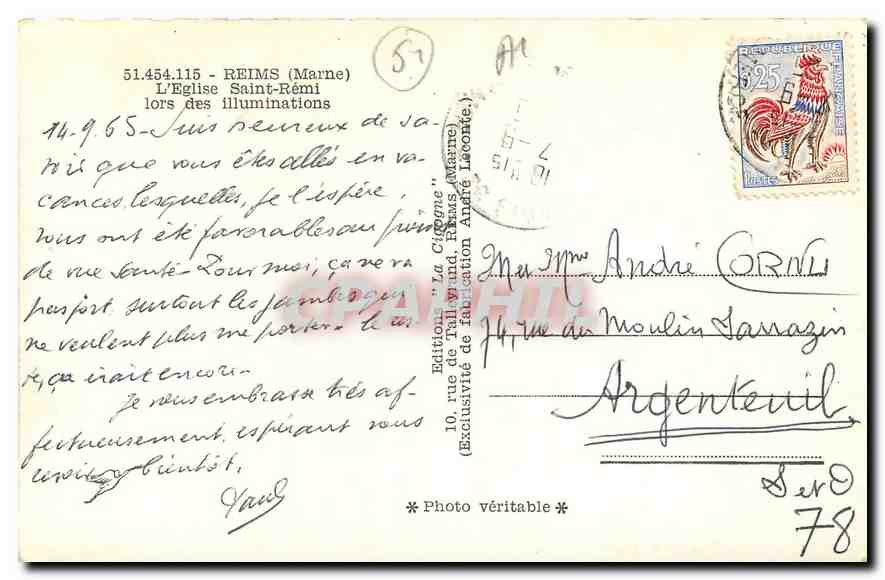 51
51.454.115 - REIMS (Marne)
L'Eglise Saint-Rémi
lors des illuminations
14-9.65- Suis heureux de sa-
voir que vous êtes allés en va-
cances, lesquelles, je l'espère,
vous ont été favorables au point
de vue santé. Pour moi, ça ne va
pas fort, surtout les jambes qui
ne veulent plus me porter. le res-
te, ça irait encore.
Je vous embrasse très af-
fectueusement, espérant vous
revoir bientôt.
Editions "La Cigogne"
10, rue de Talleyrand, REIMS (Marne)
(Exclusivité de fabrication André Leconte.)
CPARHTI
REPUBLIQUE FRANÇAISE
0,25
POSTES
10 H15
7 - 9
Mr et Mme André CORNU
74, rue du Moulin Sarrazin
Argenteuil
S et O
78
* Photo véritable *